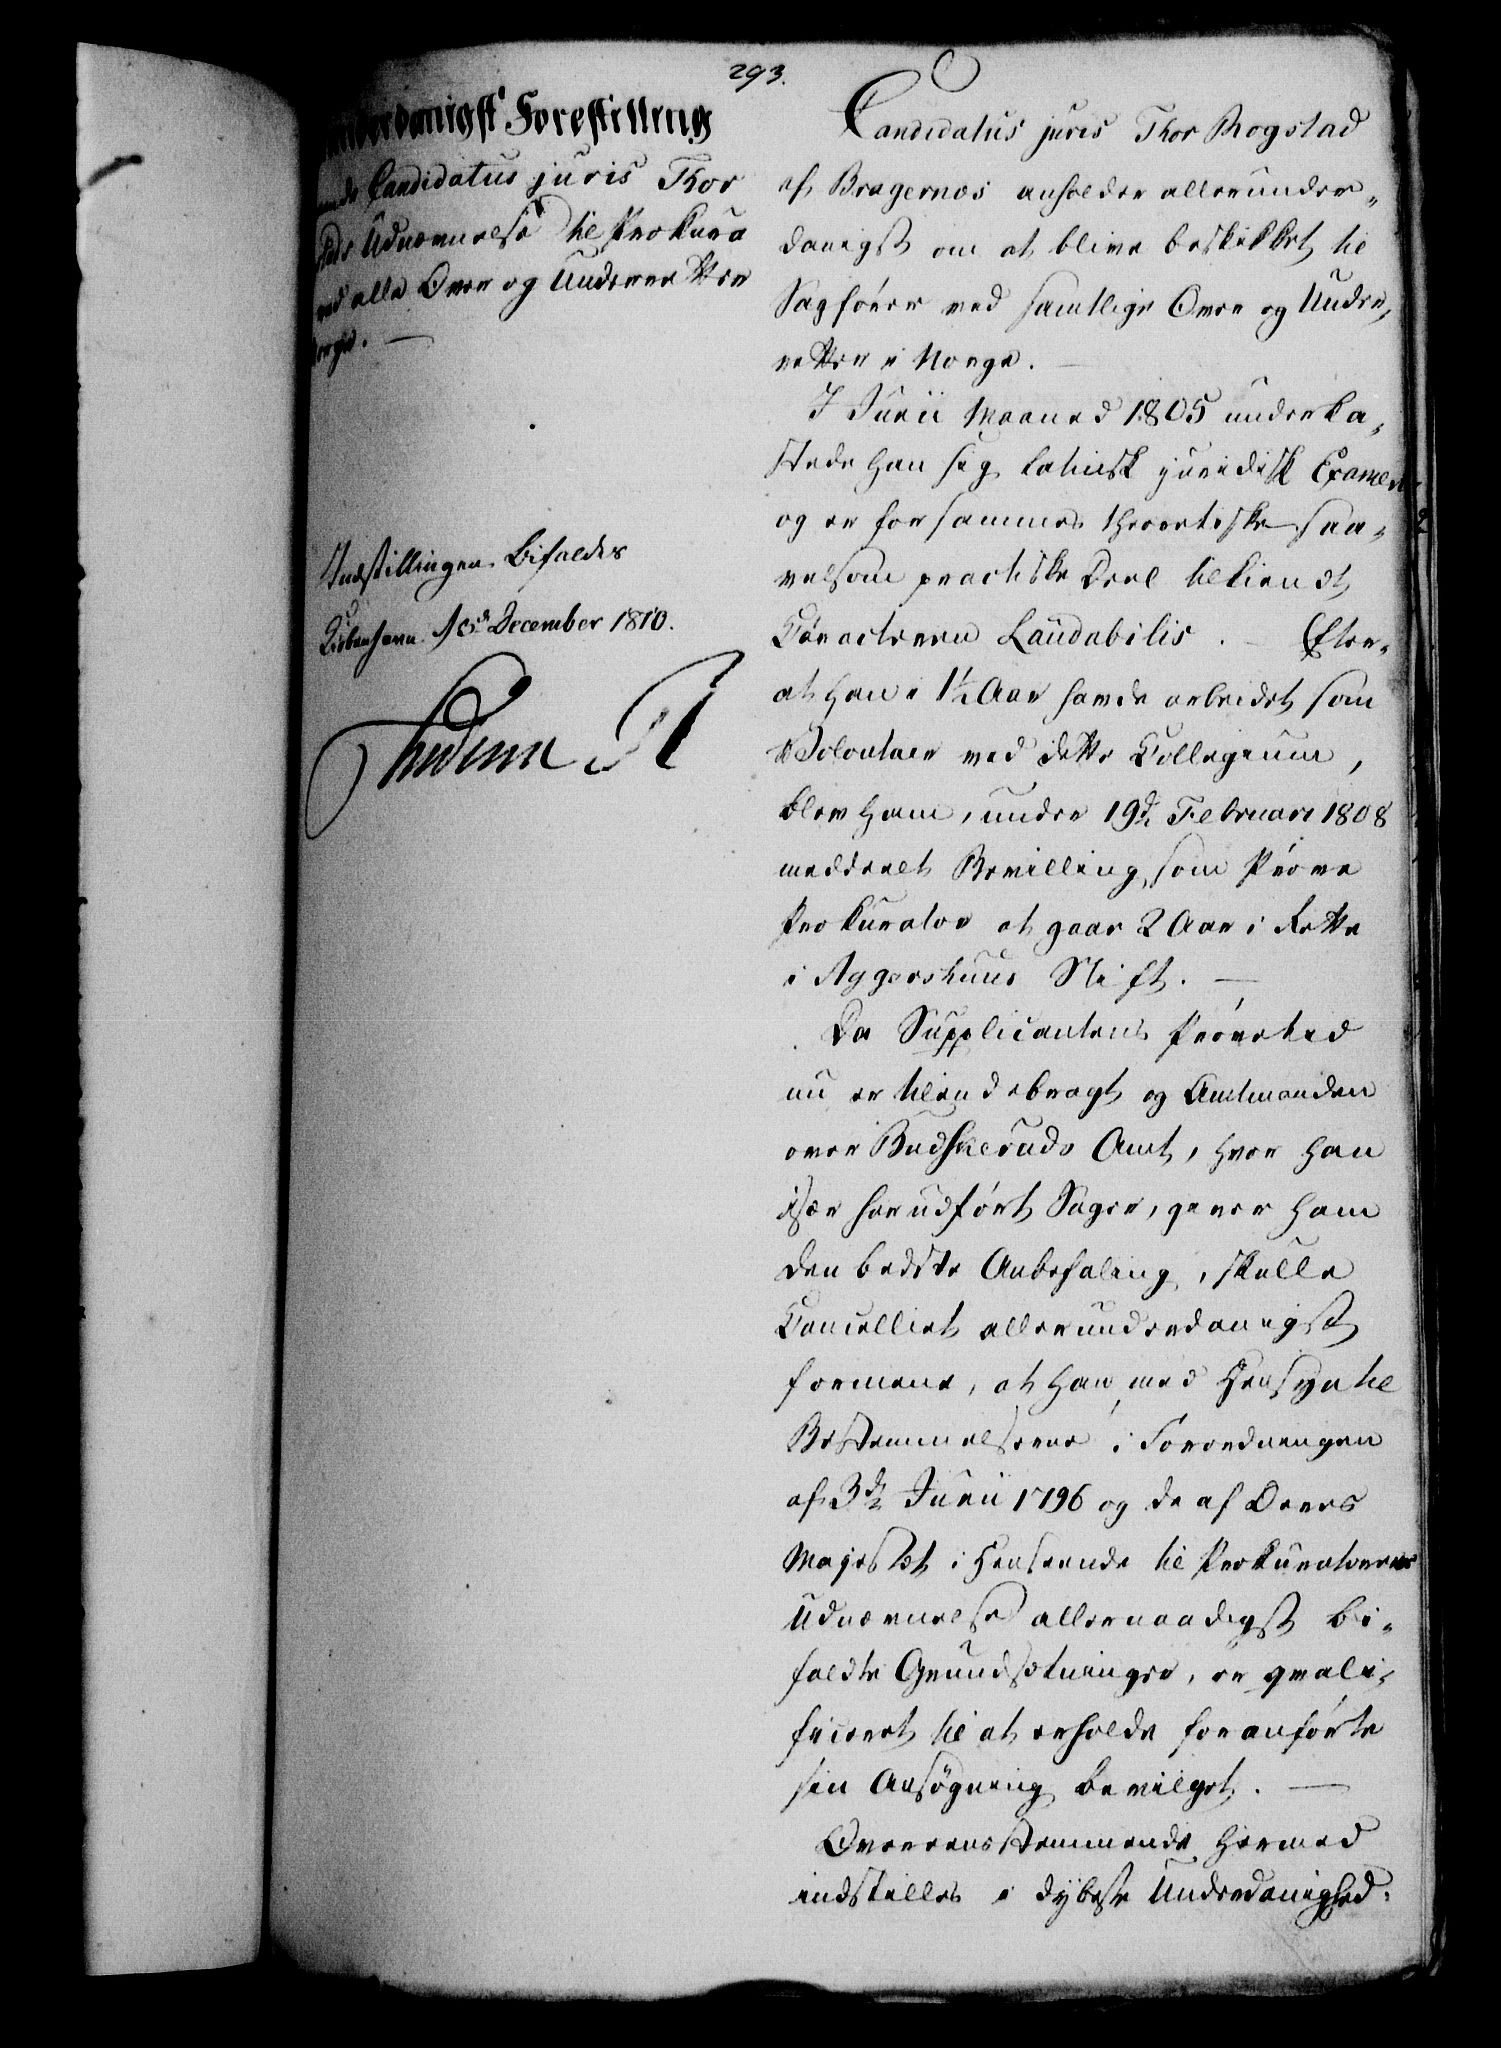 293.
underdanigst Forestilling
Candidatus juris Thor
Udnævnelse til Prokura
ved alle Over og Underretter
Norge. —
Indstillingen bifaldes
Kiøbenhavn December 1810.
Frideric R
Candidatus juris Thor Rogstad
af Bragernæs anholder allerunder-
danigst om at blive beskikket til
Sagfører ved samtlige Over og Under,
retter i Norge. —
I Junii Maaned 1805 underka-
stede han sig latinsk juridisk Examen
og er for sammes theoretiske saa-
velsom practiske Deel tilkiendt
Caracteren Laudabilis. — Efter-
at han i 1½ Aar havde arbeidet som
Volontair ved dette Collegium,
blev ham, under 19de Februari 1808
meddeelt Bevilling, som Prøve
Prokurator at gaae 2 Aar i Rette
i Aggershuus Stift. —
Da Supplicantens Prøvetid
nu er tilendebragt og Amtmanden
over Budskeruds Amt, hvor han
især har udført Sager, giver ham
den bedste Anbefaling, skulle
Cancelliet allerunderdanigst
formene, at han, med Hensyn til
Bestemmelserne i Forordningen
af 3de Junii 1796 og de af Deres
Majestæt i Henseende til Prokuratorers
Udnævnelse allernaadigst bi-
faldte Grundsætninger, er qvali-
ficeret til at erholde foranførte
sin Ansøgning bevilget. —
Overeensstemmende hermed
indstilles i dybeste Underdanighed.